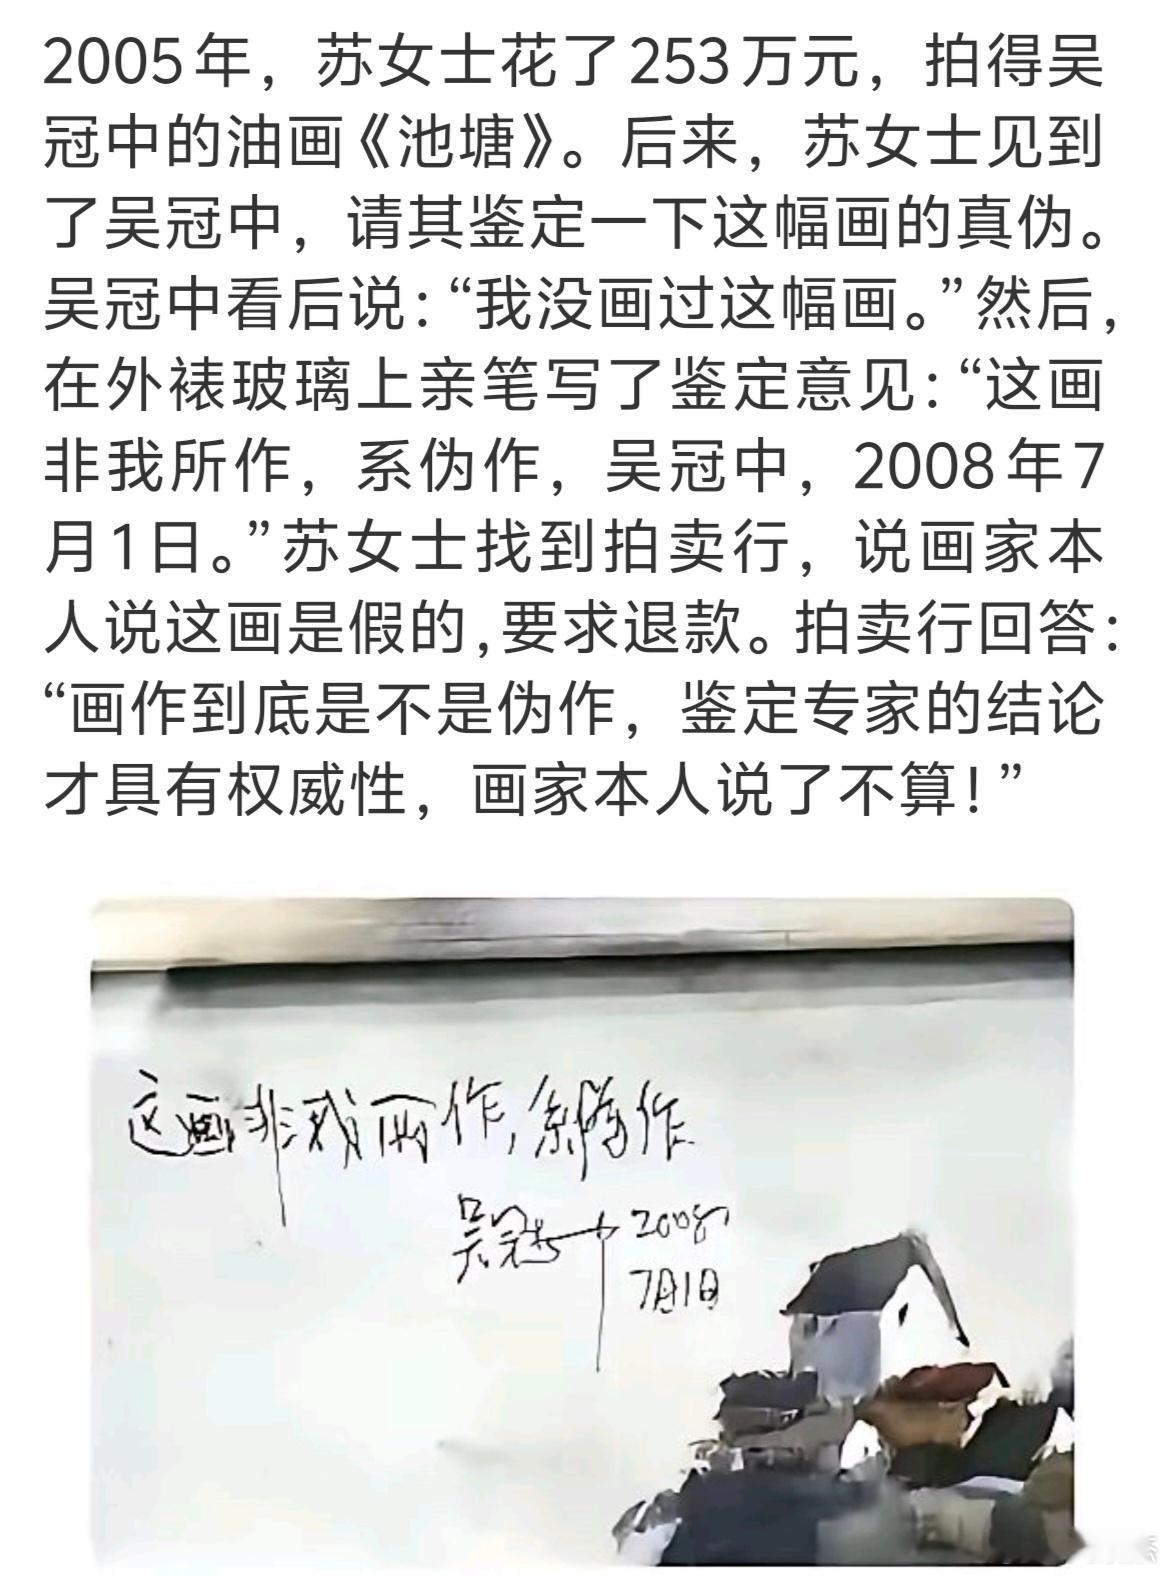 2005年，苏女士花了253万元，拍得吴
冠中的油画《池塘》。后来，苏女士见到
了吴冠中，请其鉴定一下这幅画的真伪。
吴冠中看后说：“我没画过这幅画。”然后，
在外裱玻璃上亲笔写了鉴定意见：“这画
非我所作，系伪作，吴冠中，2008年7
月1日。”苏女士找到拍卖行，说画家本
人说这画是假的,要求退款。拍卖行回答：
“画作到底是不是伪作，鉴定专家的结论
才具有权威性，画家本人说了不算！”
这画非我所作，系伪作
吴冠中 2008
7月1日